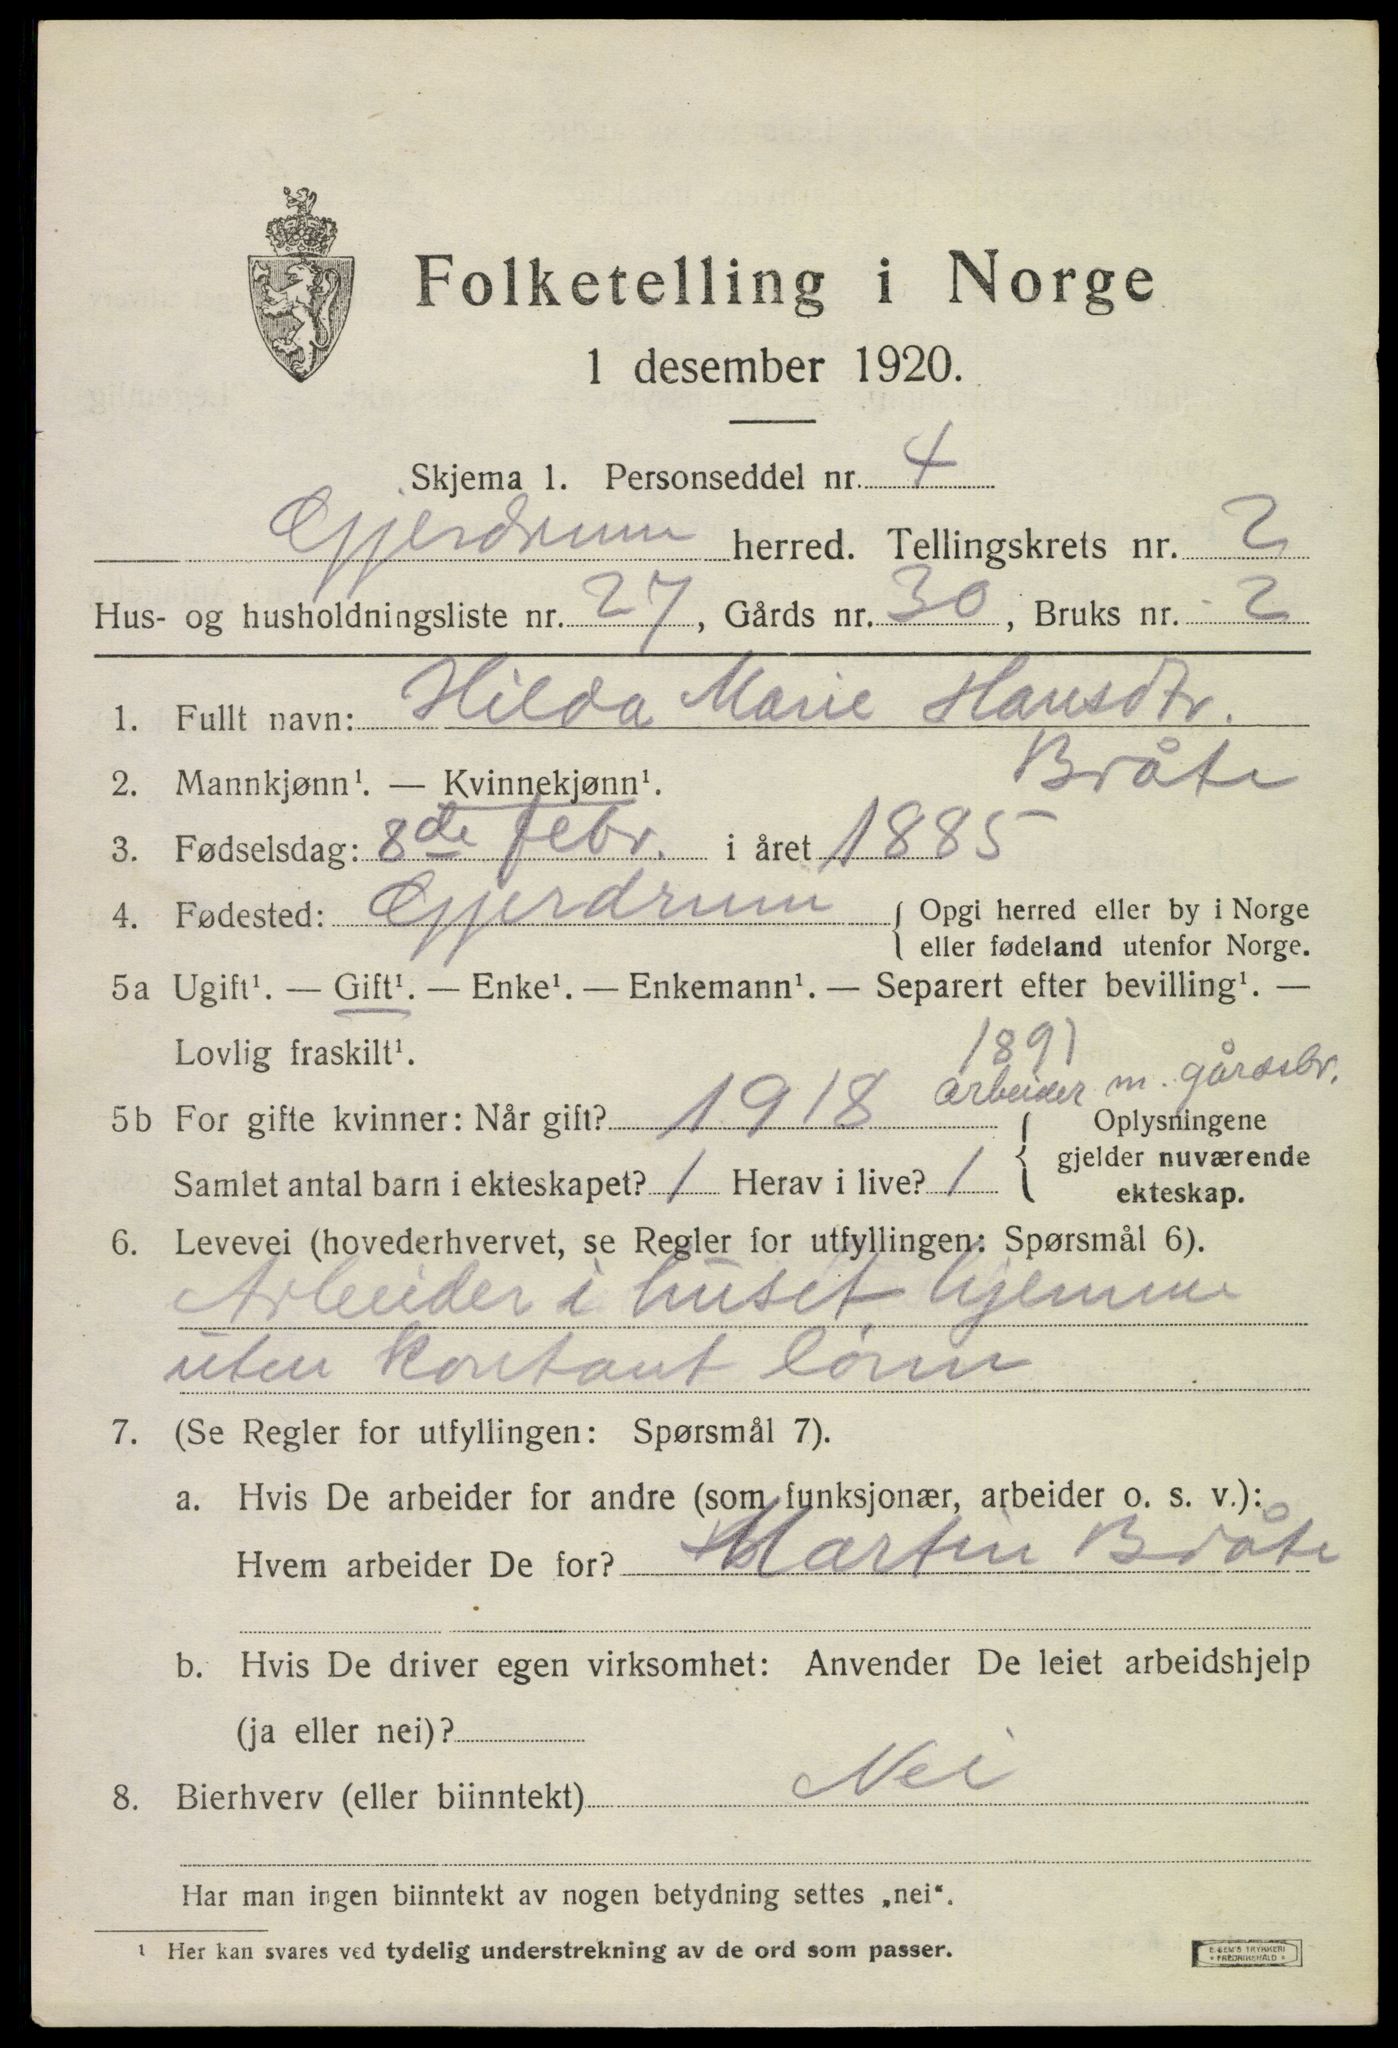 Folketelling i Norge
1 desember 1920.
Skjema 1. Personseddel nr. 4
Gjerdrum herred. Tellingskrets nr. 2
Hus- og husholdningsliste nr. 27, Gårds nr. 30, Bruks nr. 2
1. Fullt navn: Hilda Marie Hansdtr.
Bråte
2. Mannkjønn¹. — Kvinnekjønn¹.
3. Fødselsdag: 8de febr. i året 1885
4. Fødested: Gjerdrum { Opgi herred eller by i Norge
eller fødeland utenfor Norge.
5a Ugift¹. — Gift¹. — Enke¹. — Enkemann¹. — Separert efter bevilling¹. —
Lovlig fraskilt¹.
1891
arbeider m. gårdsbr.
5b For gifte kvinner: Når gift? 1918 { Oplysningene
gjelder nuværende
Samlet antal barn i ekteskapet? 1 Herav i live? 1
ekteskap.
6. Levevei (hovederhvervet, se Regler for utfyllingen: Spørsmål 6).
Arbeider i huset hjemme
uten kontant lønn
7. (Se Regler for utfyllingen: Spørsmål 7).
a. Hvis De arbeider for andre (som funksjonær, arbeider o. s. v.):
Hvem arbeider De for? Martin Bråte
b. Hvis De driver egen virksomhet: Anvender De leiet arbeidshjelp
(ja eller nei)?
8. Bierhverv (eller biinntekt) Nei
Har man ingen biinntekt av nogen betydning settes „nei“.
¹ Her kan svares ved tydelig understrekning av de ord som passer.
E. SEM'S TRYKKERI
FREDRIKSHALD